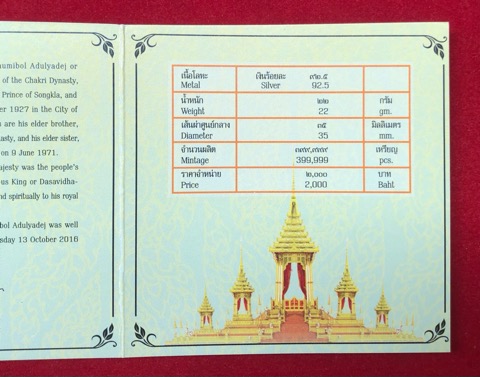 aumibol Adulyadej or
of the Chakri Dynasty,
Prince of Songkla, and
er 1927 in the City of
s are his elder brother,
asty, and his elder sister,
on 9 June 1971.
ajesty was the people's
us King or Dasavidha-
nd spiritually to his royal
ibol Adulyadej was well
sday 13 October 2016
เนื้อโลหะ เงินร้อยละ ๙๒.๕
Metal Silver 92.5
น้ำหนัก ๒๒ กรัม
Weight 22 gm.
เส้นผ่าศูนย์กลาง ๓๕ มิลลิเมตร
Diameter 35 mm.
จำนวนผลิต ๓๙๙,๙๙๙ เหรียญ
Mintage 399,999 pcs.
ราคาจำหน่าย ๒,๐๐๐ บาท
Price 2,000 Baht